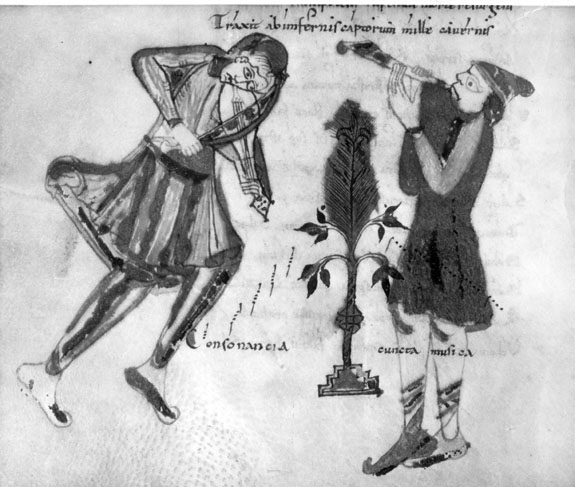 Traxit ab infernis captorum mille cavernis
Consonancia cuncta musica